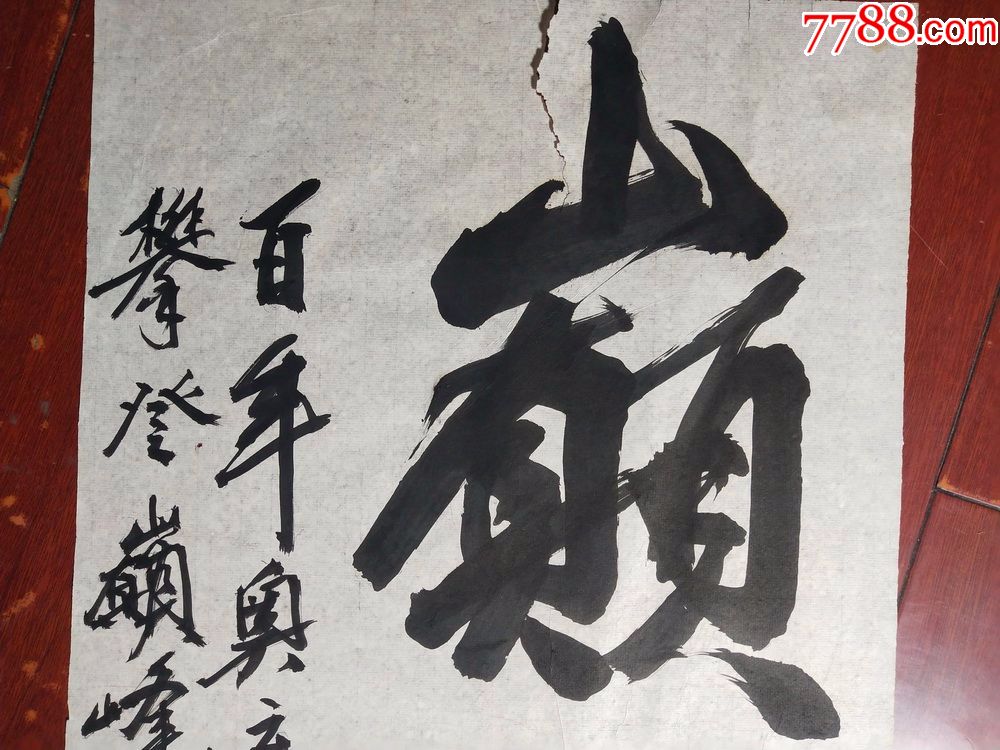 巅
百年奥
攀登巅峰
7788.com